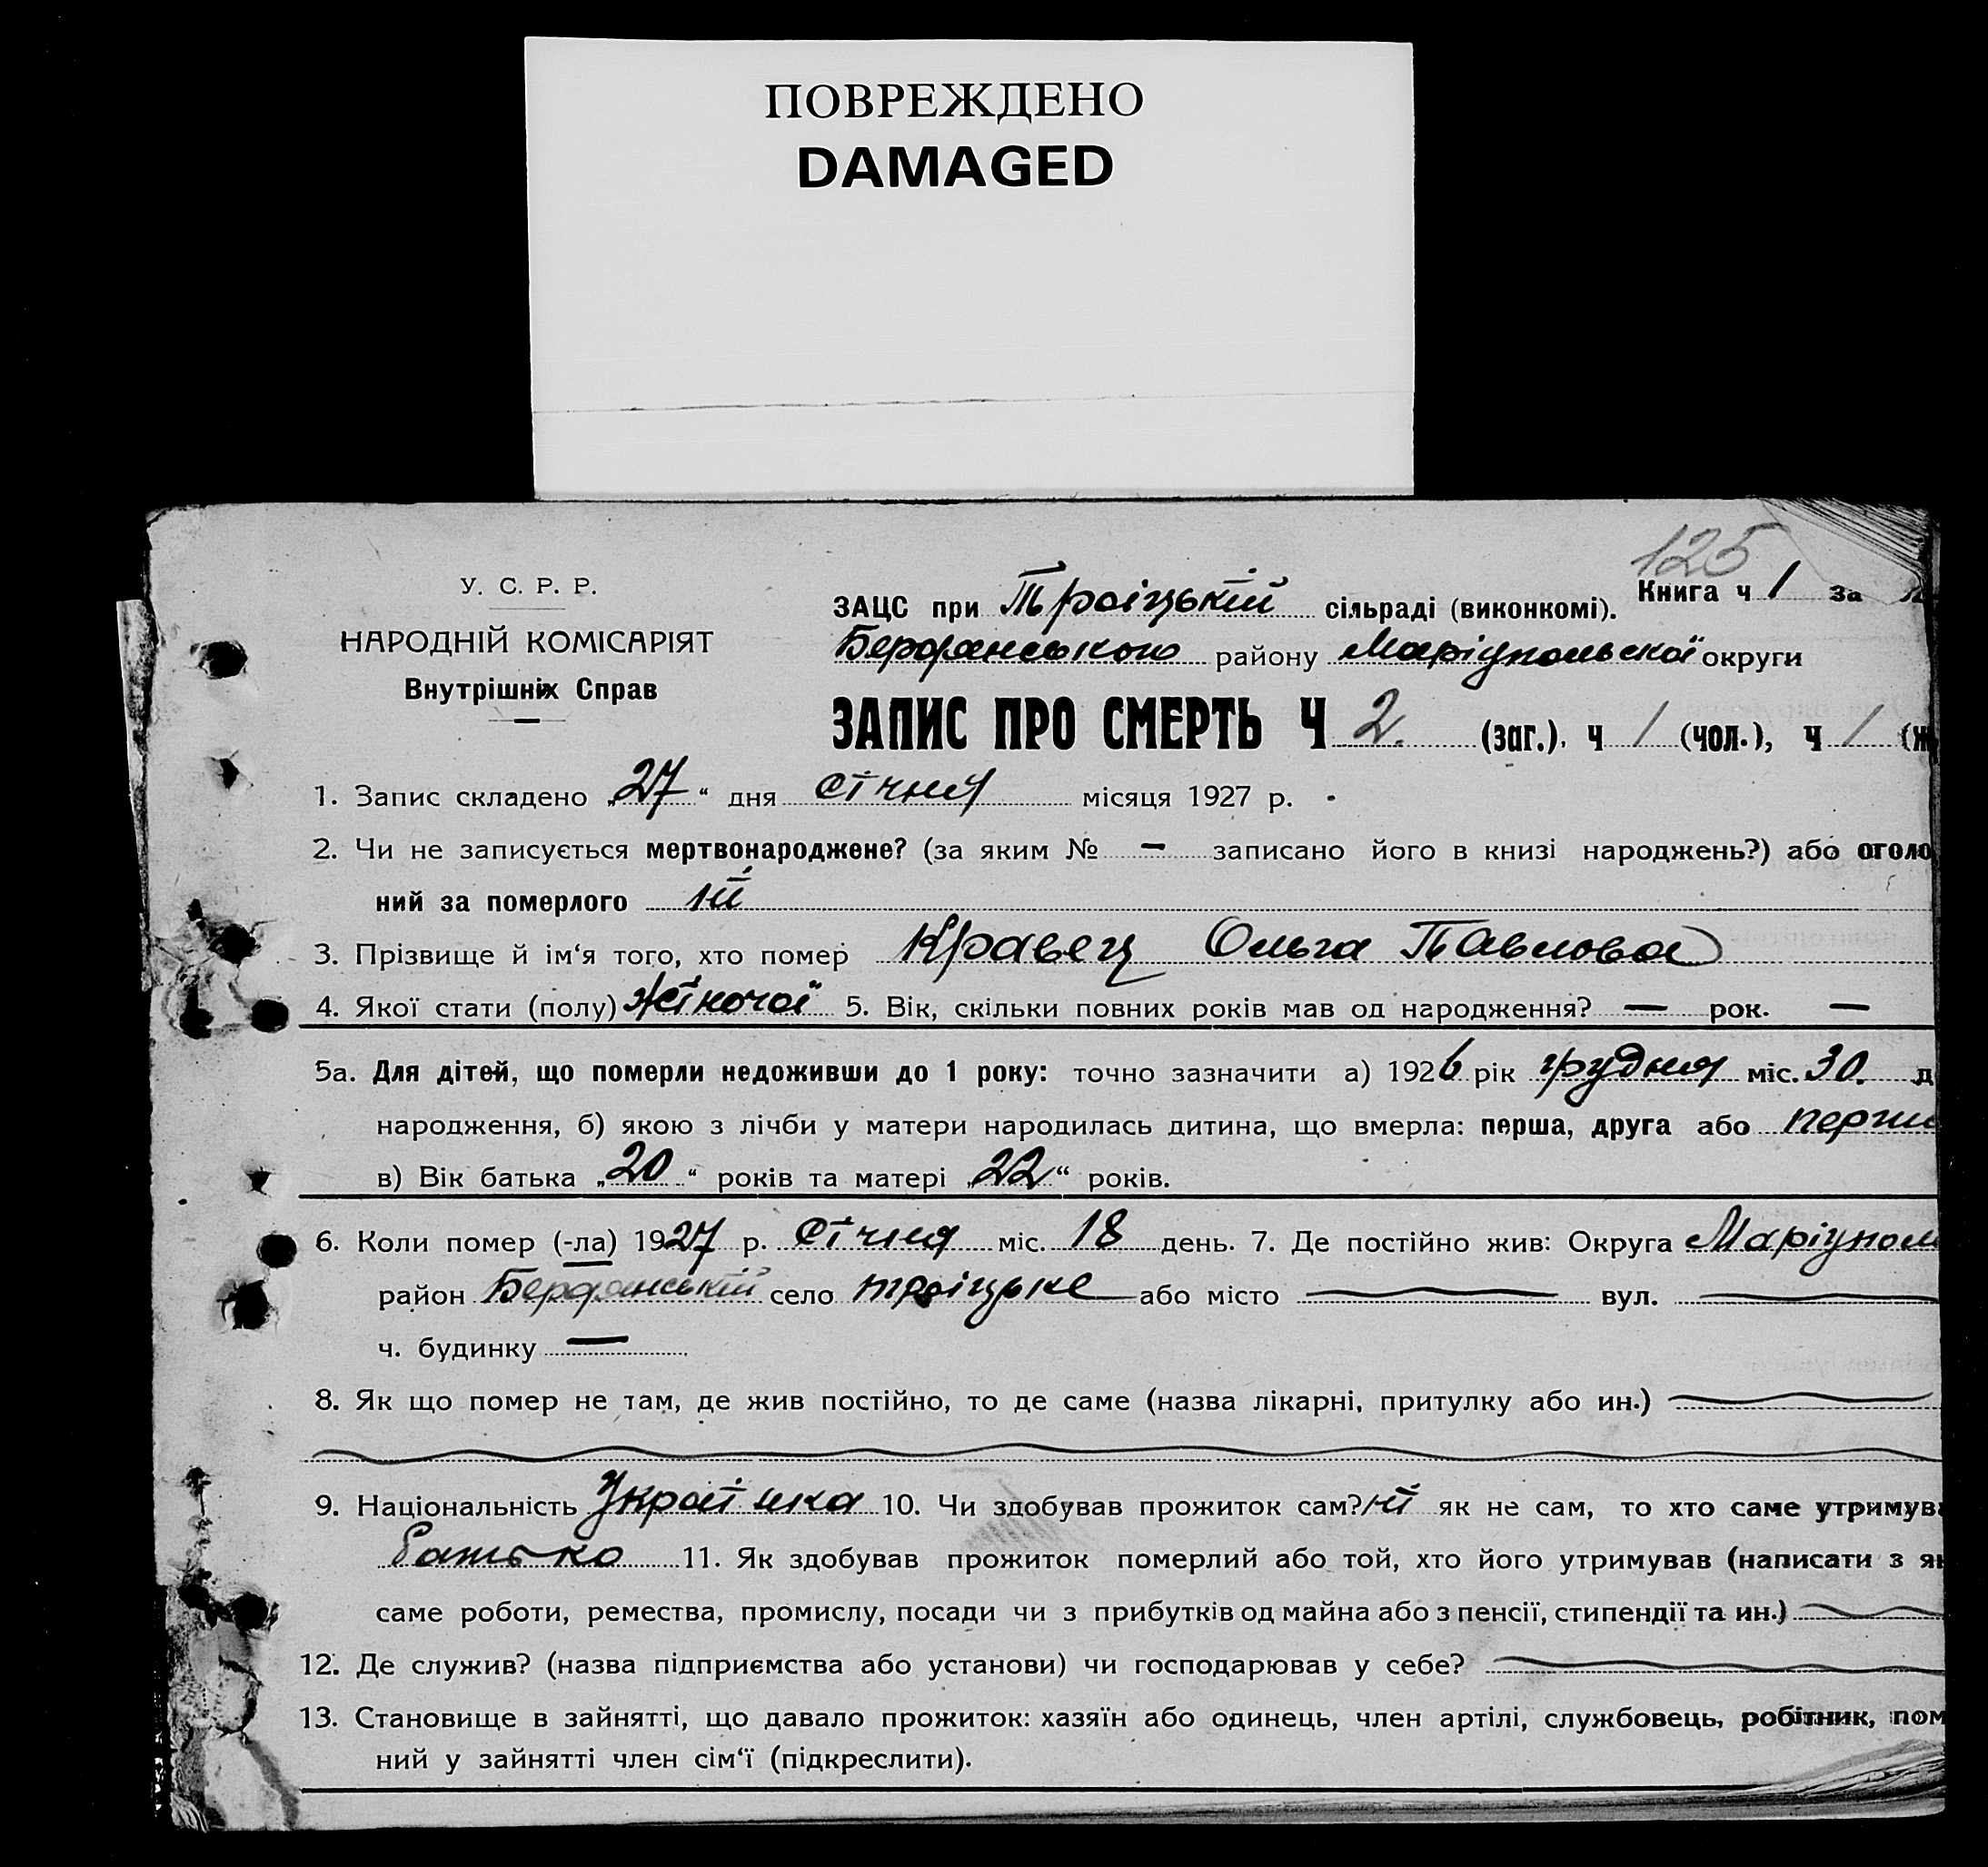 ПОВРЕЖДЕНО
DAMAGED
125
У. С. Р. Р.
НАРОДНІЙ КОМІСАРІЯТ
Внутрішніх Справ
Книга ч 1 за
ЗАЦС при Троіцькій сільраді (виконкомі).
Бердянського району Маріупольскої округи
ЗАПИС ПРО СМЕРТЬ Ч 2. (заг.), ч 1 (чол.), ч 1 (ж
1. Запис складено „27“ дня січня місяця 1927 р.
2. Чи не записується мертвонароджене? (за яким № — записано його в книзі народжень?) або оголо
ний за померлого ні
3. Прізвище й ім‘я того, хто помер Кравец Ольга Павловна
4. Якої стати (полу) жіночої 5. Вік, скільки повних років мав од народження? — рок. —
5а. Для дітей, що померли недоживши до 1 року: точно зазначити а) 1926 рік грудня міс. 30. д
народження, б) якою з лічби у матери народилась дитина, що вмерла: перша, друга або перша
в) Вік батька „20“ років та матері „22“ років.
6. Коли помер (-ла) 1927 р. січня міс. 18 день. 7. Де постійно жив: Округа Маріупол
район Бердянський село троіцьке або місто — вул. —
ч. будинку —
8. Як що помер не там, де жив постійно, то де саме (назва лікарні, притулку або ин.)
9. Національність Українка 10. Чи здобував прожиток сам? ні як не сам, то хто саме утримува
батько 11. Як здобував прожиток померлий або той, хто його утримував (написати з як
саме роботи, ремества, промислу, посади чи з прибутків од майна або з пенсії, стипендії та ин.)
12. Де служив? (назва підприємства або установи) чи господарював у себе?
13. Становище в зайнятті, що давало прожиток: хазяїн або одинець, член артілі, службовець, робітник, пом
ний у зайнятті член сім‘ї (підкреслити).